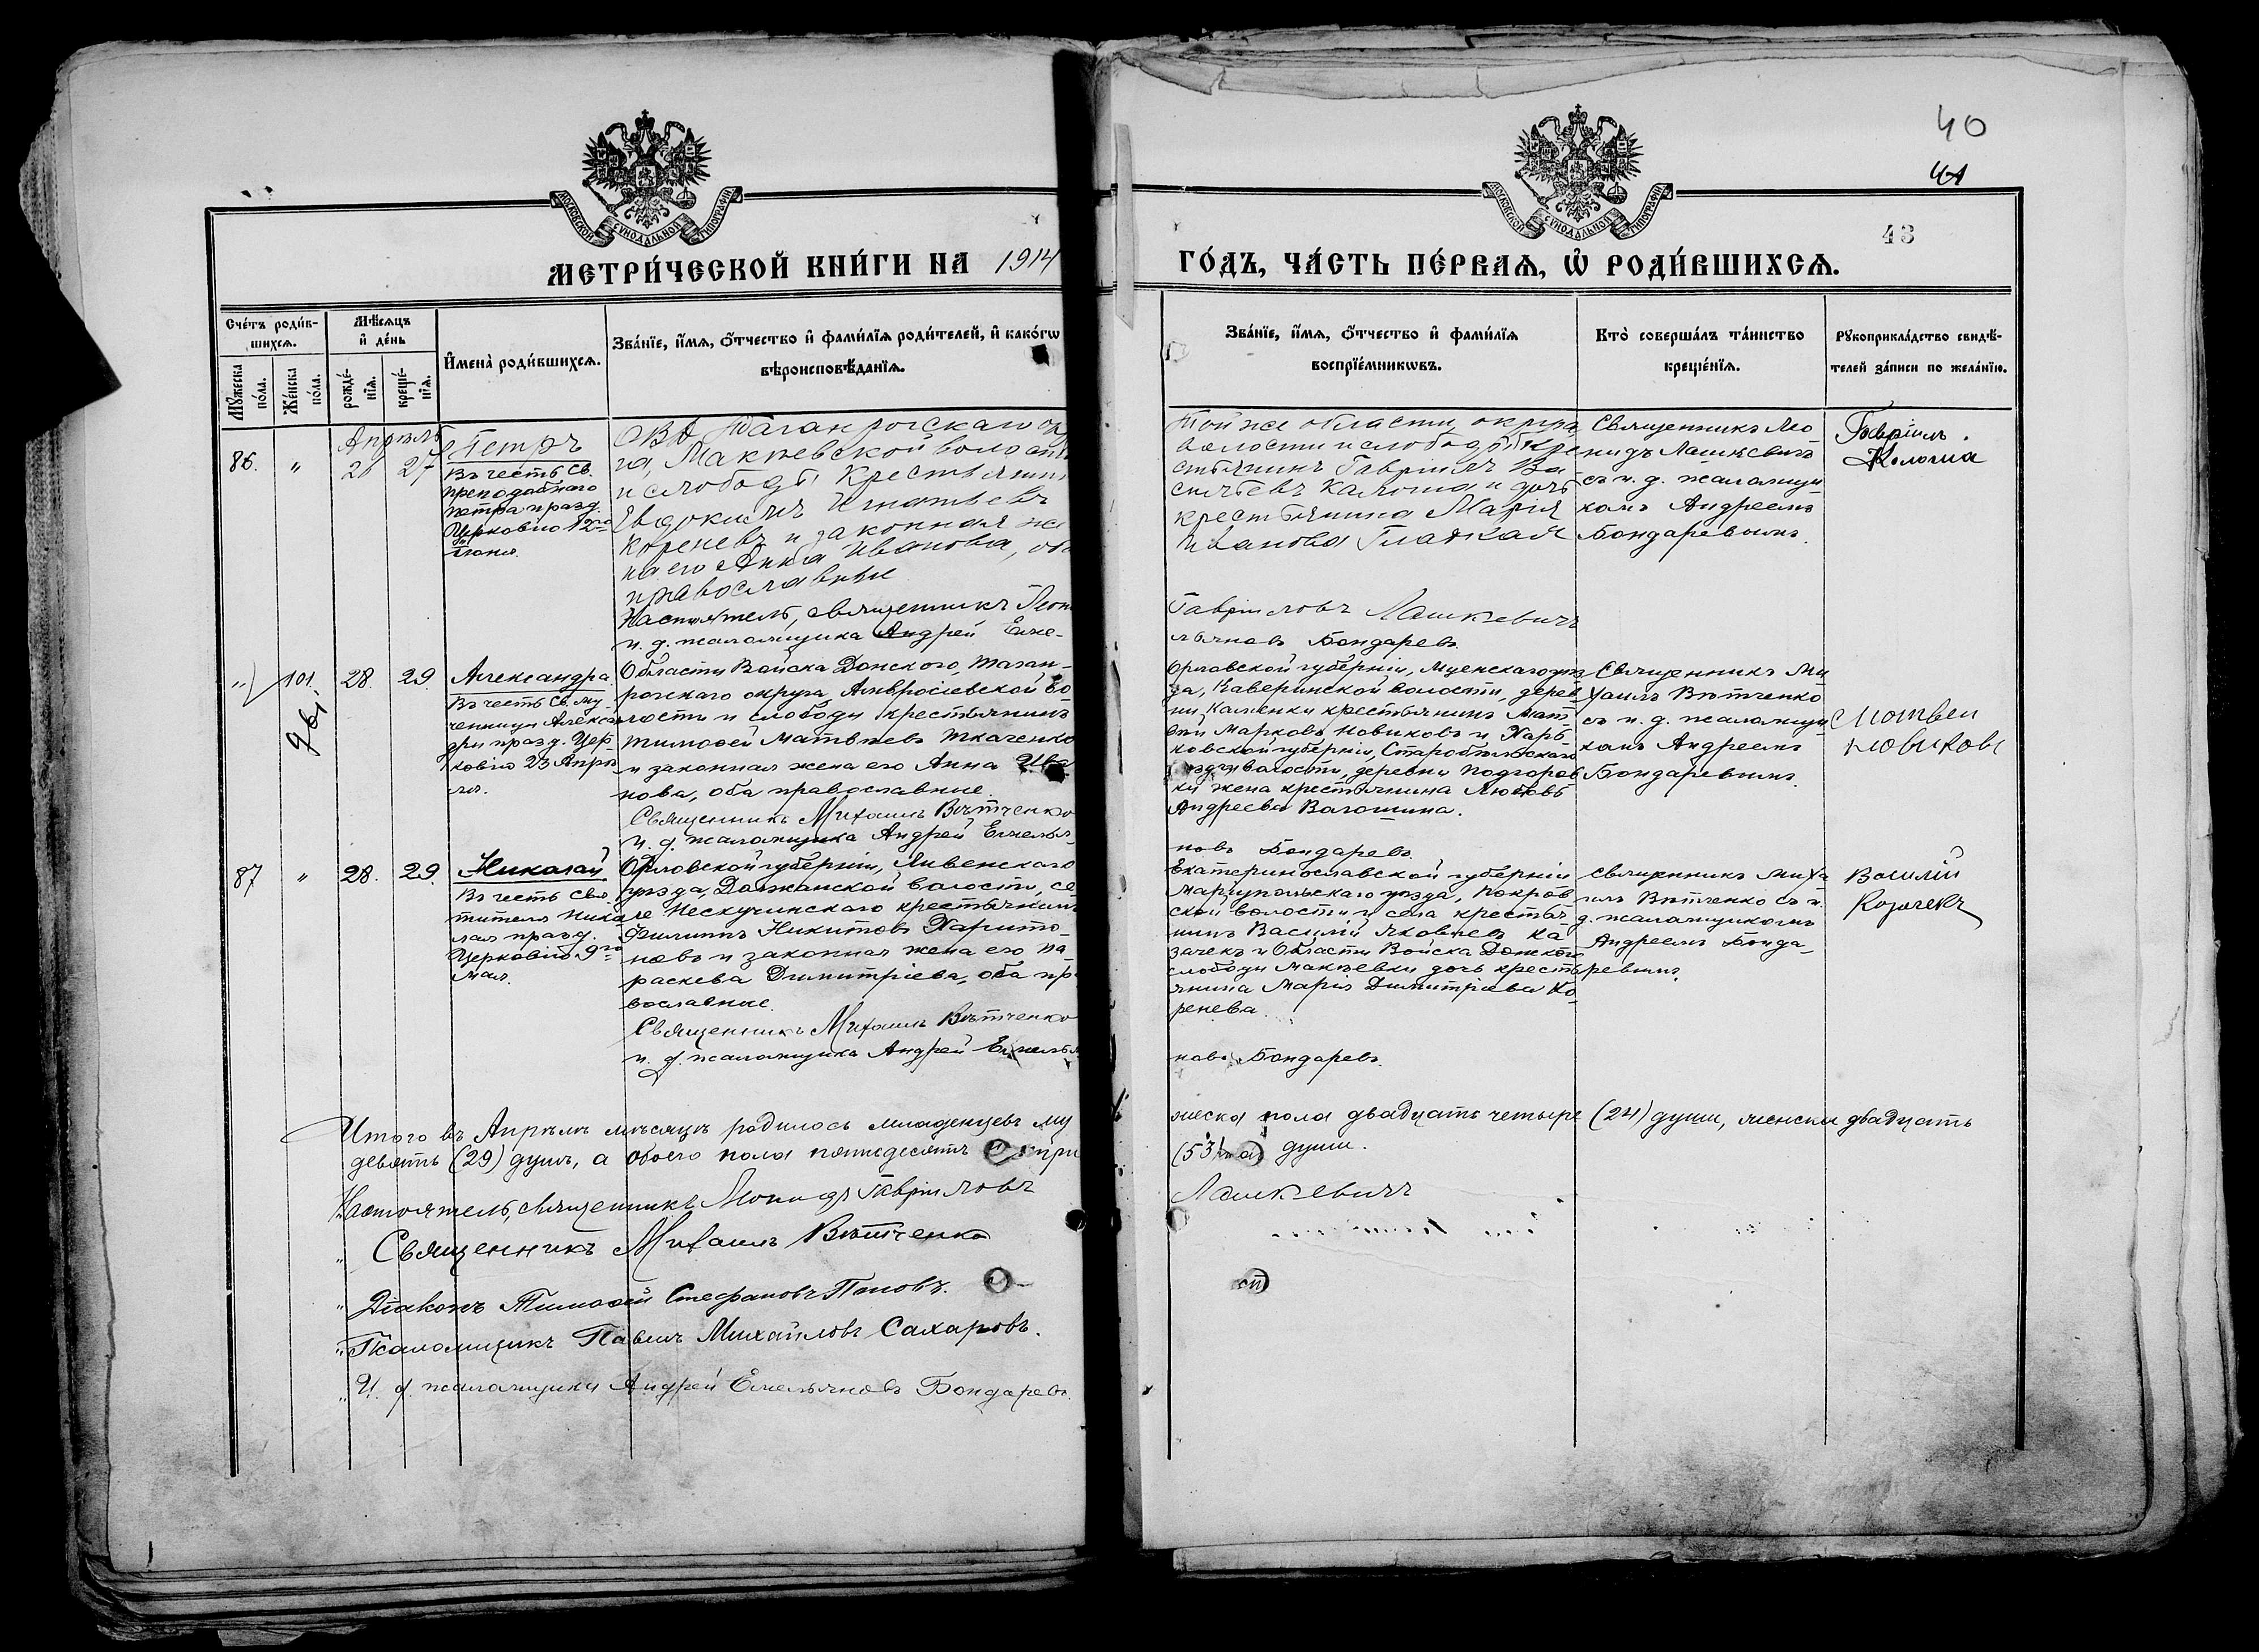 40
41
43
МОСКОВСКОЙ СѴНОДАЛЬНОЙ ТИПОГРАФІИ
МОСКОВСКОЙ СѴНОДАЛЬНОЙ ТИПОГРАФІИ
МЕТРИ́ЧЕСКОЙ КНИ́ГИ НА 1914
ГО́ДЪ, ЧА́СТЬ ПЕ́РВАѦ, Ѡ҆ РОДИ́ВШИХСѦ.
Сче́тъ роди́в-
шихсѧ.
Мꙋ́жеска
по́ла.
Же́нска
по́ла.
Мѣ́сѧцъ
и҆ де́нь
рожде́-
нїѧ.
креще́-
нїѧ.
И҆мена̀ роди́вшихсѧ.
Зва́нїе, и҆́мѧ, ѻ҆́тчество и҆ фами́лїѧ роди́телей, и҆ како́гѡ
вѣроисповѣ́данїѧ.
Зва́нїе, и҆́мѧ, ѻ҆́тчество и҆ фами́лїѧ
воспрїе́мникѡвъ.
Кто̀ соверша́лъ та́инство
креще́нїѧ.
Рꙋкоприкла́дство свидѣ́-
телей за́писи по жела́нїю.
Апрѣль
86. " 26 27
Петръ
Въ честь Св.
преподобнаго
Петра празд.
Церковію 12го
Іюня.
ОВД Таганрогскаго окр
га, Макѣевской волости
и слободы крестьянинъ
Евдокимъ Игнатьевъ
Кореневъ и законная же
на его Анна Иванова, оба
православные
Настоятель, священникъ Леон
и. д. псаломщика Андрей Емє-
Той же области, округа,
волости и слободы кре
стьянинъ Гавріилъ Ва
сильевъ Калоша и дочь
крестьянина Марія
Иванова Гладкая
Гавріиловъ Лашкевичъ
льяновъ Бондаревъ
Священникъ Лео
нидъ Лашкевичъ
съ и. д. псаломщи
комъ Андреемъ
Бондаревымъ.
Гавріилъ
Калоша
" 101. 28. 29.
Александра
Въ честь Св. му
ченицы Алексан
дры празд. Цер
ковію 23 Апрѣ
ля.
Области Войска Донского, Таган-
рогскаго округа, Амвросіевской во
лости и слободы крестьянинъ
Тимофей Матвѣевъ Ткаченко
и законная жена его Анна Ива
нова, оба православные.
Священникъ Михаилъ Вѣтченко
и. д. псаломщика Андрей Емелья-
Орловской губерніи, Мценскаго уѣз
да, Каверинской волости, дерев
ни Каменки крестьянинъ Мат
вѣй Марковъ Новиковъ и Харь
ковской губерніи, Старобѣльскаго
уѣзда волости, деревни Подгоров
ки жена крестьянина Любовь
Андреева Волошина.
новъ Бондаревъ.
Священникъ Ми
хаилъ Вѣтченко
съ и. д. псаломщи
комъ Андреемъ
Бондаревымъ.
Матвей
Новиковъ
87 " 28. 29.
Николай
Въ честь Свя
тителя Нико
лая празд.
Церковію 9го
Мая.
Орловской губерніи, Ливенскаго
уѣзда, Должанской волости, се
ле Нескучинскаго крестьянинъ
Филиппъ Никитовъ Харито-
новъ и законная жена его Па-
раскева Димитріева, оба пра
вославные.
Священникъ Михаилъ Вѣтченко
и. д. псаломщика Андрей Емелья
Екатеринославской губерніи
Маріупольскаго уѣзда, Покров
ской волости и села крестья
нинъ Василій Яковлевъ Ка-
зачекъ и Области Войска Донского
слободы Макѣевки дочь кресть
янина Марія Димитріева Ко
ренева.
новъ Бондаревъ.
Священникъ Миха
илъ Вѣтченко съ и.
д. псаломщикомъ
Андреемъ Бонда-
ревымъ.
Василій
Козачекъ
Итого въ Апрѣлѣ мѣсяцѣ родилось младенцевъ му
жеска пола двадцать четыре (24) души, женска двадцать
девять (29) душъ, а обоего пола пятьдесятъ три
(53) души.
Настоятель, священникъ Леонидъ Гавріиловъ
Лашкевичъ
" Священникъ Михаилъ Вѣтченко
" Діаконъ Тимофей Стефановъ Поповъ.
" Псаломщикъ Павелъ Михайловъ Сахаровъ.
" И. д. псаломщика Андрей Емельяновъ Бондаревъ.